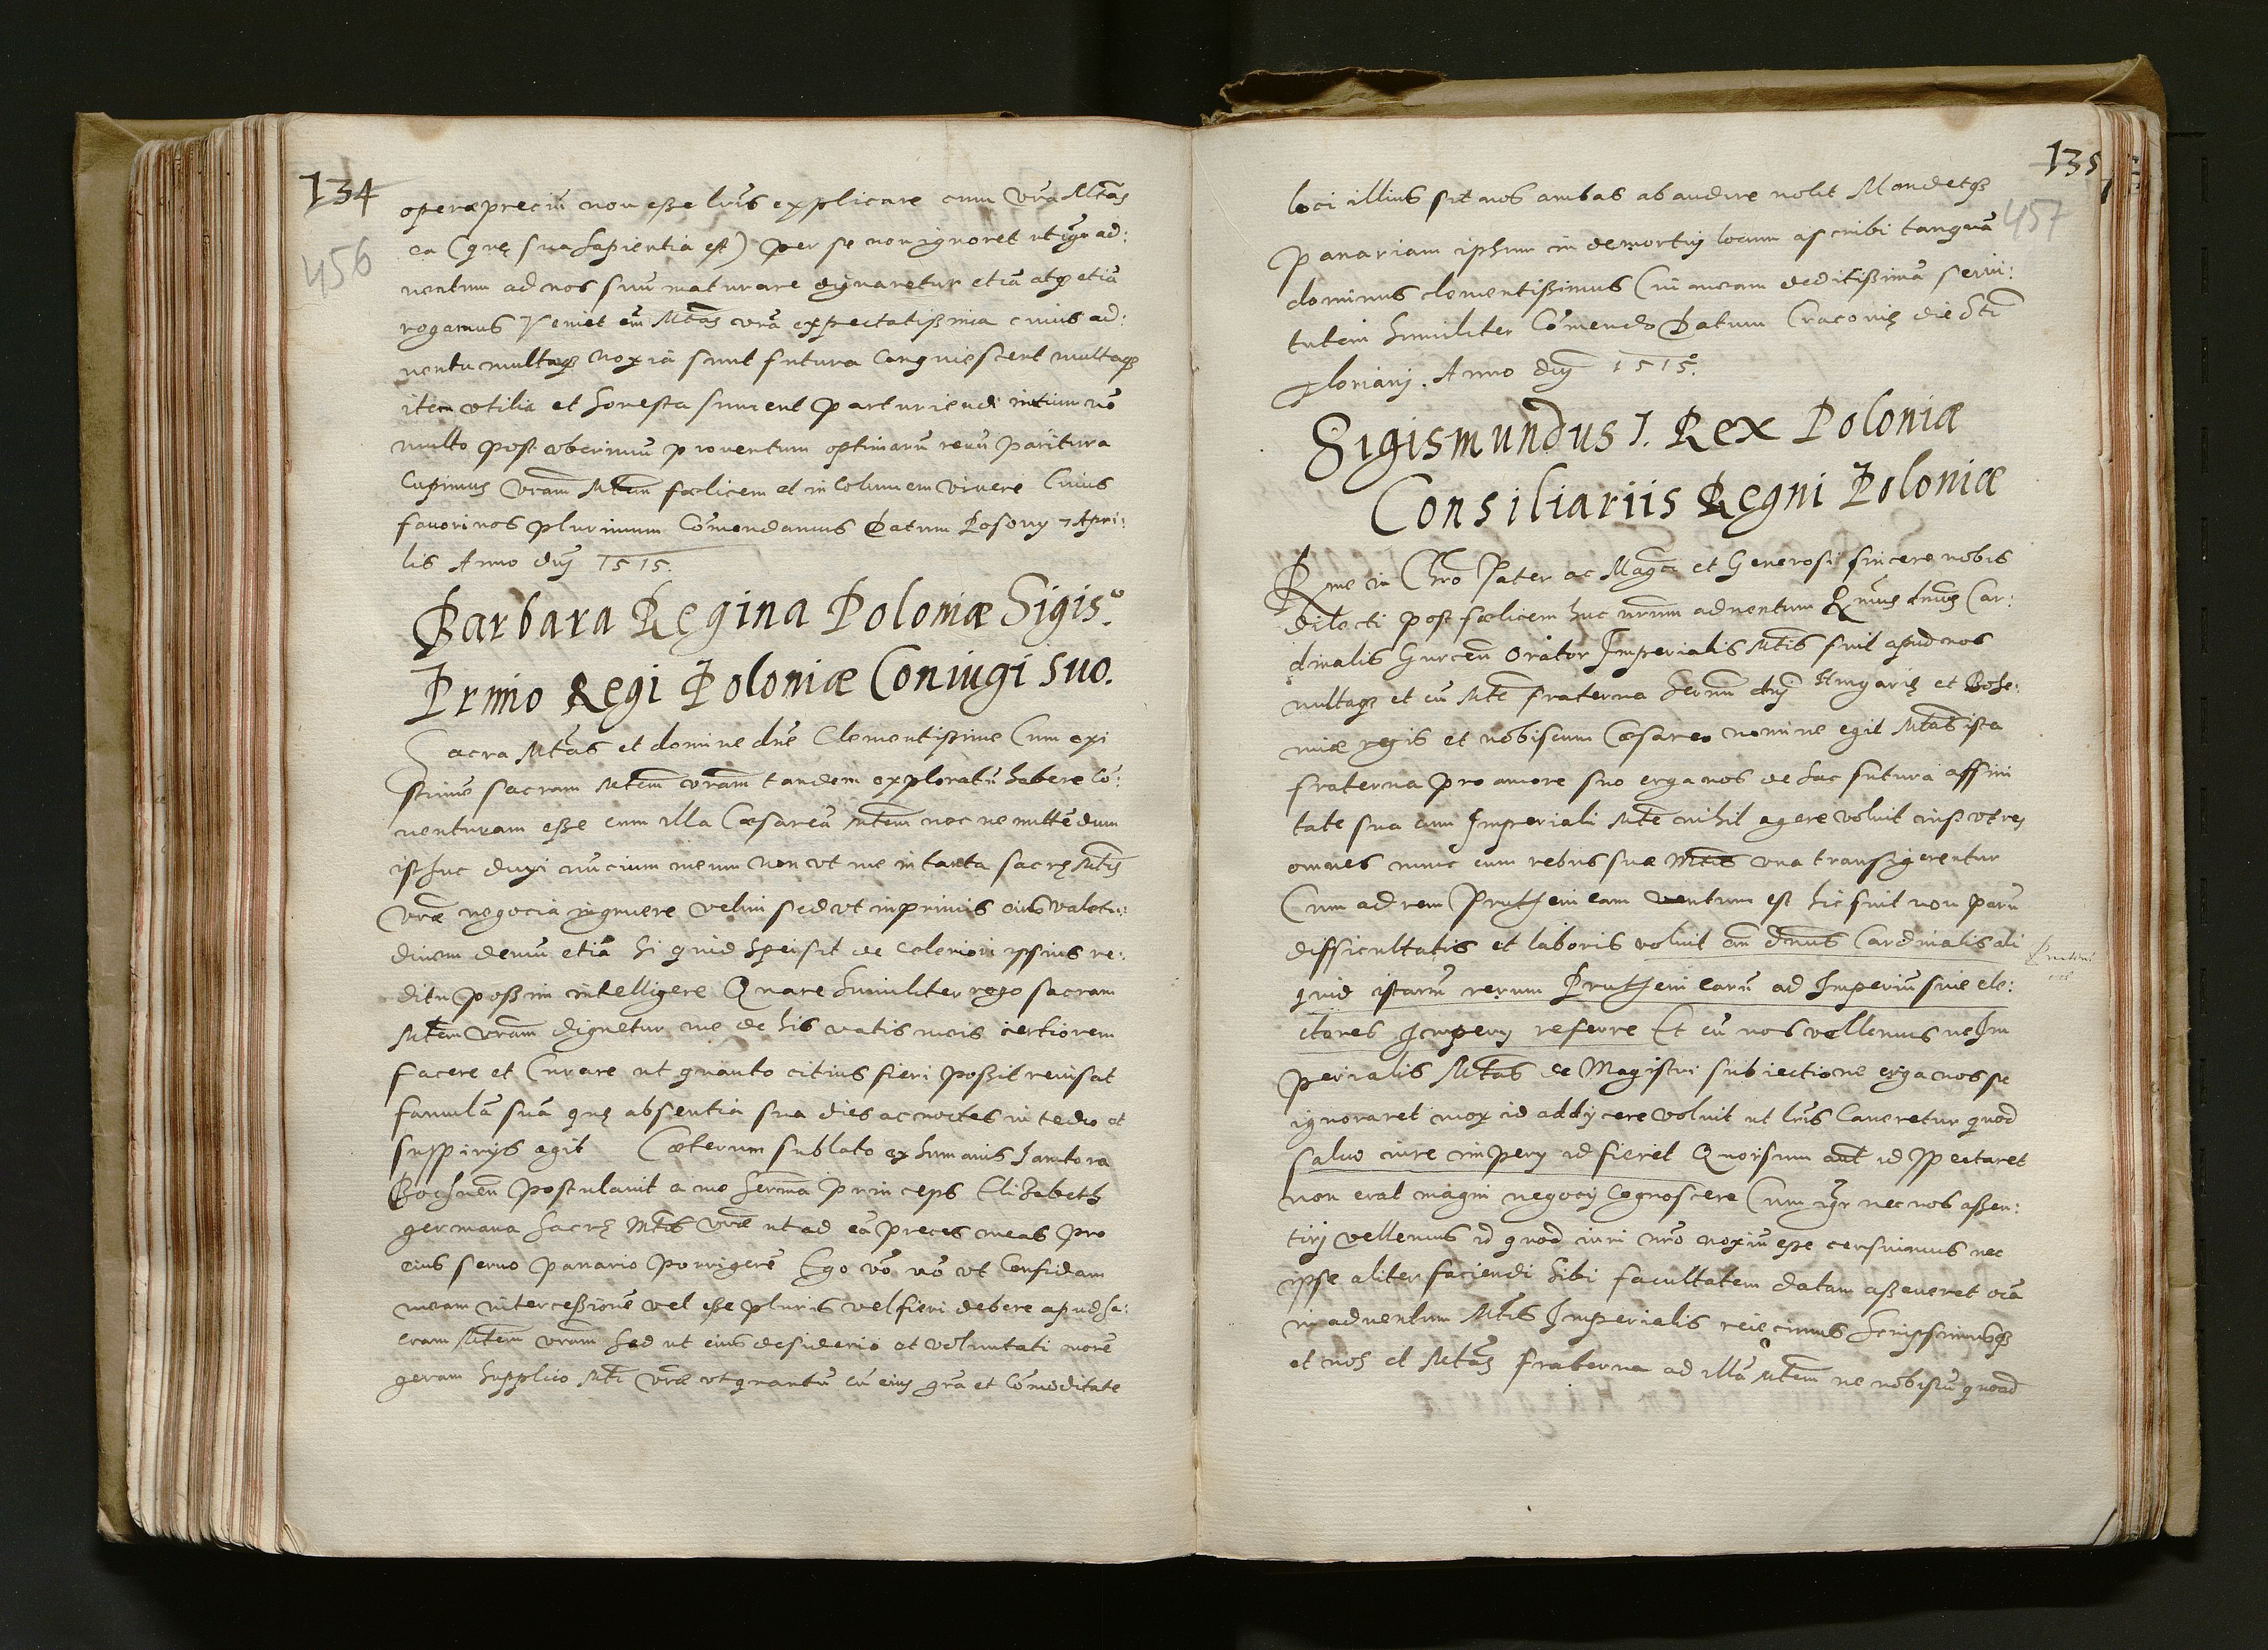 134
456
operæpreciũ non eße lr̃is explicare cum vr̃a Mtãs
ea (quę sua sapientia est) per se non ignoret ut igr̃ ad:
uentum ad nos suũ maturare dignaretur etiã atqȝ etiã
rogamus Veniet em̃ Mtãs vrã expectatißima cuius ad:
uentu multaqȝ noxia sunt futura Conquiescent multaqȝ
item vtilia et honesta sument parturiendi initium nõ
multo post vberimũ prouentum optimarũ rerũ paritura
Cupimus vram̃ Mtem̃ fœlicem et incolumem viuere Cuius
fauori nos plurimum Cõmendamus Datum Posony 7 Apri:
lis Anno dnj̃ 1515.
Barbara Regina Poloniæ Sigis:º
Primo Regi Poloniæ Coniugi suo.
Sacra Mtãs et domine dñe Clementißime Cum exi
stimẽ sacram Mtem̃ vram̃ tandem exploratũ habere Cõ:
uenturam eße cum illa Cæsareã Mtem̃ nec ne mittẽdum
isthuc duxi nũcium meum Non vt me in tanta sacrę Mtis̃
Vræ̃ negocia ingruere velim sed vt inprimis eius valetu:
dinem demũ etiã Si quid spei sit de celeriori ipsius re:
ditu poßim intelligere Quare humiliter rogo sacram
Mtem̃ vram̃ dignetur me de his votis meis certiorem
facere et Curare ut quanto citius fieri poßit reuisat
famulã suã quę absentia sua dies ac noctes in tedio et
suspirijs egit Cæterum sublato ex humanis Jantora
Bochnen̄ postulauit a me Serm̃a princeps Elizabeth
germana Sacrę Mtis̃ vræ̃ ut ad eã preces meas pro
eius seruo panario porrigerẽ Ego võ nõ vt Confidam
meam intercessionẽ vel eße pluris vel fieri debere apud sa:
cram Mtem̃ vram̃ Sed ut eius desiderio et voluntati morẽ
geram Supplico Mti̇̃ vræ̃ vt quantũ cũ eius gr̃a et Cõmoditate
135
457
loci illius sit nos ambas ab audire nolit Mandetqȝ
panariam ipsum in demortuj locum ascribi tanquã
dominus clementißimus Cui meam deditißimã serui:
tutem humiliter Cõmendo Datum Cracouię die Sti̇̃
Floriani. Anno dnj̃ 1515º.
Sigismundus I. Rex Poloniæ
Consiliariis Regni Poloniæ
Rme in Chrõ Pater ac Magci̇̃ et Generosi sincere nobis
dilecti post fœlicem huc nrũm aduentum Rmũs dnũs Car:
dinalis Gurceñ Orator Imperialis Mtis̃ fuit apud nos
multaqȝ et cũ Mtė̃ fraterna Sermĩ dnj̃ Hungarię et Bohe:
miæ regis et nobiscum Cæsareo nomine egit Mtãs ista
fraterna pro amore suo erga nos de hac futura affini
tate sua cum Imperiali Mtė̃ nihil agere voluit nisi vt res
omnes nunc cum rebus suæ Mtis̃ vna transigerentur
Cum ad rem Pruthenicam ventum est hic fuit non parũ
difficultatis et laboris voluit em̃ dnũs Cardinalis ali
quid istarũ rerum Pruthenicarũ ad Imperiũ siue ele:
ctores Imperij referre Et cũ nos vellemus ne Im
perialis Mtãs de Magistri subiectione erga nos se
ignoraret mox id addijcere voluit ut lr̃is Caueretur quod
saluo iure imperij id fieret Quorsum aut̃ id spectaret
non erat magni negocij Cognoscere Cum igr̃ nec nos aßen:
tiri vellemus id quod iuri nrõ noxiũ eße censuimus nec
ipse aliter faciendi sibi facultatem datam aßeueret oĩa
in aduentum Mtis̃ Imperialis reiecimus Scripsimusqȝ
et nos et Mtãs fraterna ad illã Mtem̃ ne nobiscũ quoad